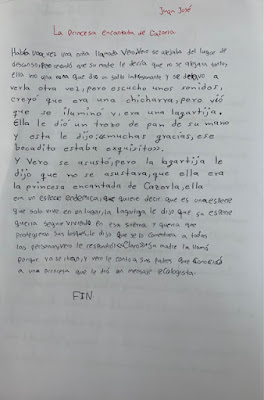 Juan José
La Princesa encantada de Cazorla
Había una vez una niña llamada Vero. Vero se alejaba del lugar de
descanso, recordó que su madre le decía que no se alejara tanto,
ella vio una rana que dio un salto impresionante y se detuvo a
verla otra vez, pero escucho unos sonidos,
creyó que era una chicharra, pero vió
que se iluminó y era una lagartija.
Ella le dió un trozo de pan de su mano
y esta le dijo: «muchas gracias, ese
bocadito estaba exquisito».
Y Vero se asustó, pero la lagartija le
dijo que no se asustara, que ella era
la princesa encantada de Cazorla, ella
era un especie endemica, que quiere decir que es una especie
que solo vive en un lugar, la lagartija le dijo que su especie
queria seguir viviendo en esa sierra y queria que
protegieran sus bosques, le dijo que se lo comentara a todas
las personas, Vero le respondió «Claro». Su madre la llamó
porque ya se iban, y Vero le contó a sus padres que conoció
a una princesa que le dió un mensaje ecologista.
FIN